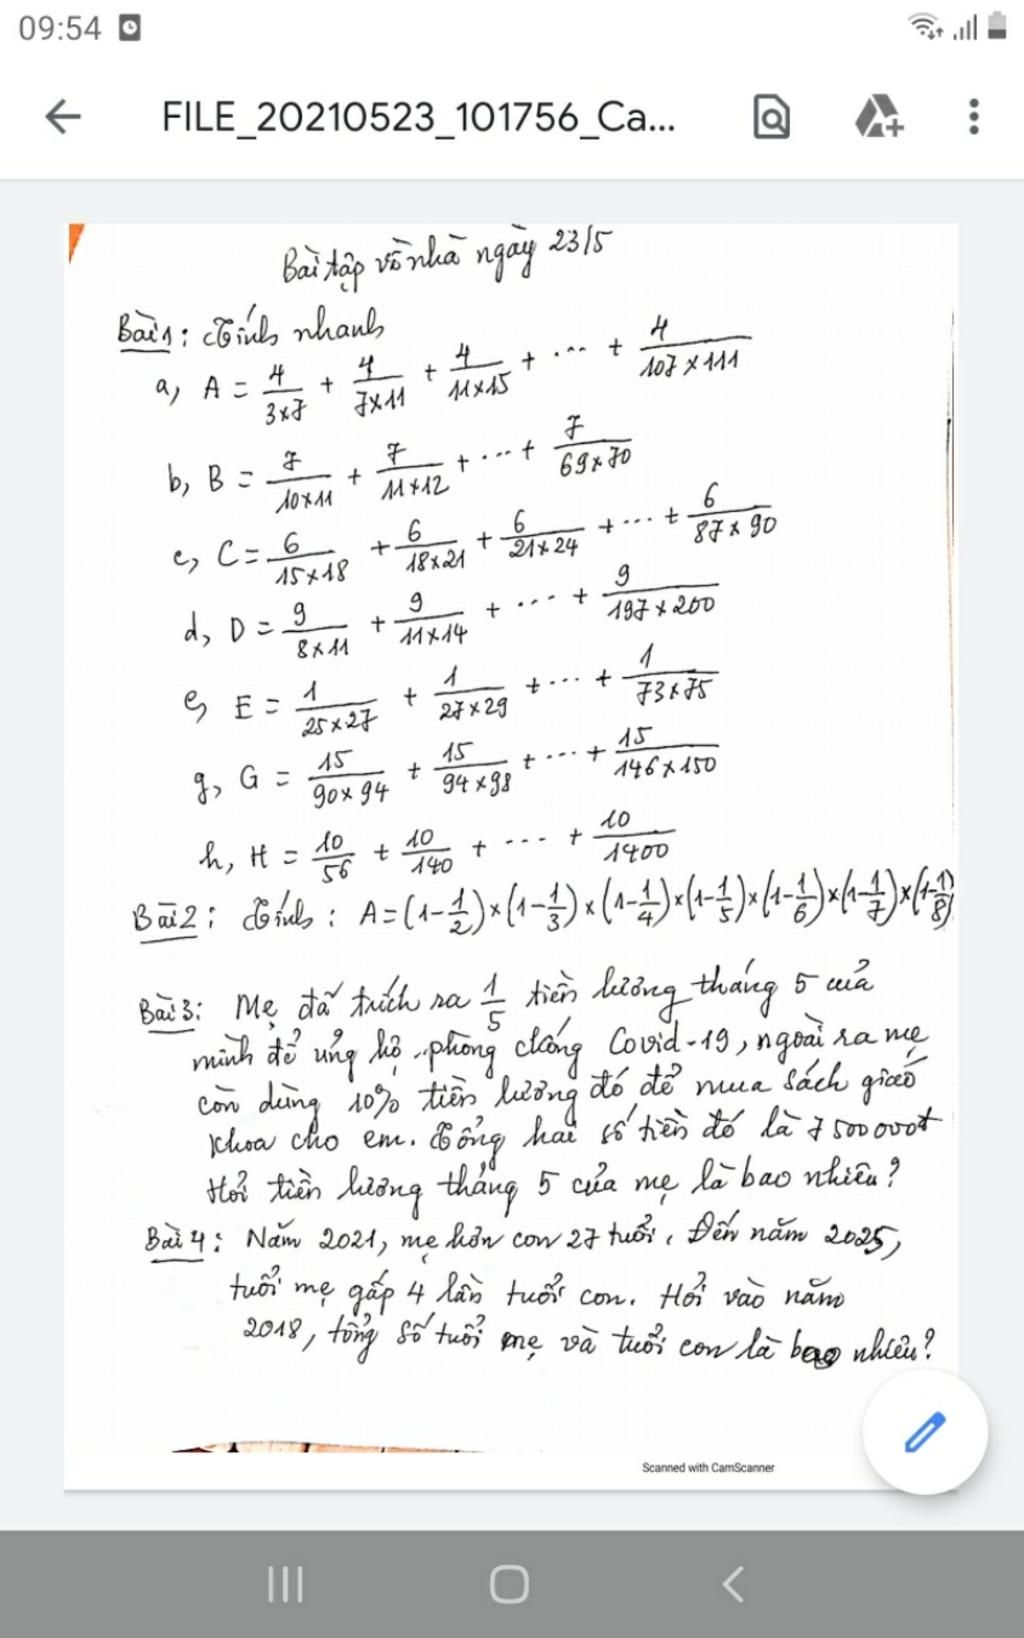 09:54
FILE_20210523_101756_Ca...
Bài tập về nhà ngày 23/5
Bài 1: Tính nhanh
a, A = 4/3×7 + 4/7×11 + 4/11×15 + ... + 4/107×111
b, B = 7/10×11 + 7/11×12 + ... + 7/69×70
c, C = 6/15×18 + 6/18×21 + 6/21×24 + ... + 6/87×90
d, D = 9/8×11 + 9/11×14 + ... + 9/197×200
e, E = 1/25×27 + 1/27×29 + ... + 1/73×75
g, G = 15/90×94 + 15/94×98 + ... + 15/146×150
h, H = 10/56 + 10/140 + ... + 10/1400
Bài 2: Tính: A = (1-1/2)×(1-1/3)×(1-1/4)×(1-1/5)×(1-1/6)×(1-1/7)×(1-1/8)
Bài 3: Mẹ đã trích ra 1/5 tiền lương tháng 5 của
mình để ủng hộ phòng chống Covid-19, ngoài ra mẹ
còn dùng 10% tiền lương đó để mua sách giáo
khoa cho em. Tổng hai số tiền đó là 7500000đ
Hỏi tiền lương tháng 5 của mẹ là bao nhiêu?
Bài 4: Năm 2021, mẹ hơn con 27 tuổi. Đến năm 2025,
tuổi mẹ gấp 4 lần tuổi con. Hỏi vào năm
2018, tổng số tuổi mẹ và tuổi con là bao nhiêu?
Scanned with CamScanner